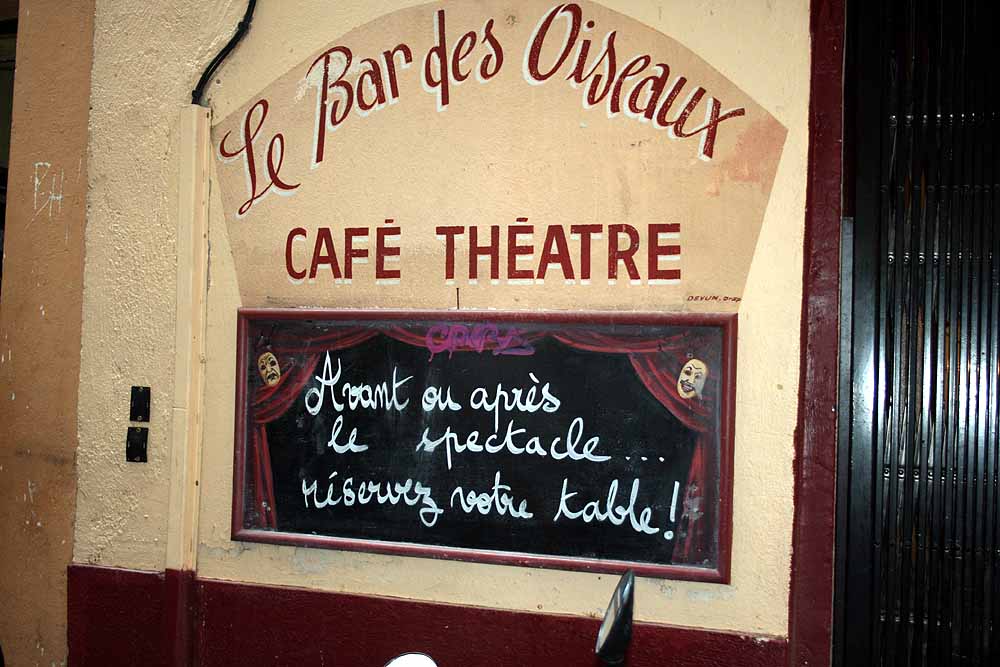 Le Bar des Oiseaux
CAFÉ THÉATRE
Avant ou après
le spectacle...
réservez votre table!
BH